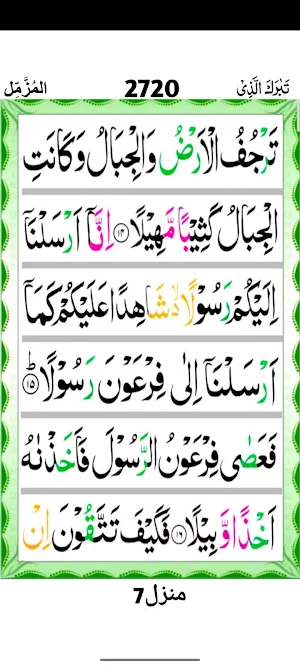 تَبٰرَكَ الَّذِیْ 2720 الْمُزَّمِّل
تَرْجُفُ الْاَرْضُ وَالْجِبَالُ وَكَانَتِ
الْجِبَالُ كَثِیْبًا مَّهِیْلًا ۝۱۴ اِنَّاۤ اَرْسَلْنَاۤ
اِلَیْكُمْ رَسُوْلًا ۙ۬ شَاهِدًا عَلَیْكُمْ كَمَاۤ
اَرْسَلْنَاۤ اِلٰی فِرْعَوْنَ رَسُوْلًا ؕ۝۱۵
فَعَصٰی فِرْعَوْنُ الرَّسُوْلَ فَاَخَذْنٰهُ
اَخْذًا وَّبِیْلًا ۝۱۶ فَكَیْفَ تَتَّقُوْنَ اِنْ
منزل 7